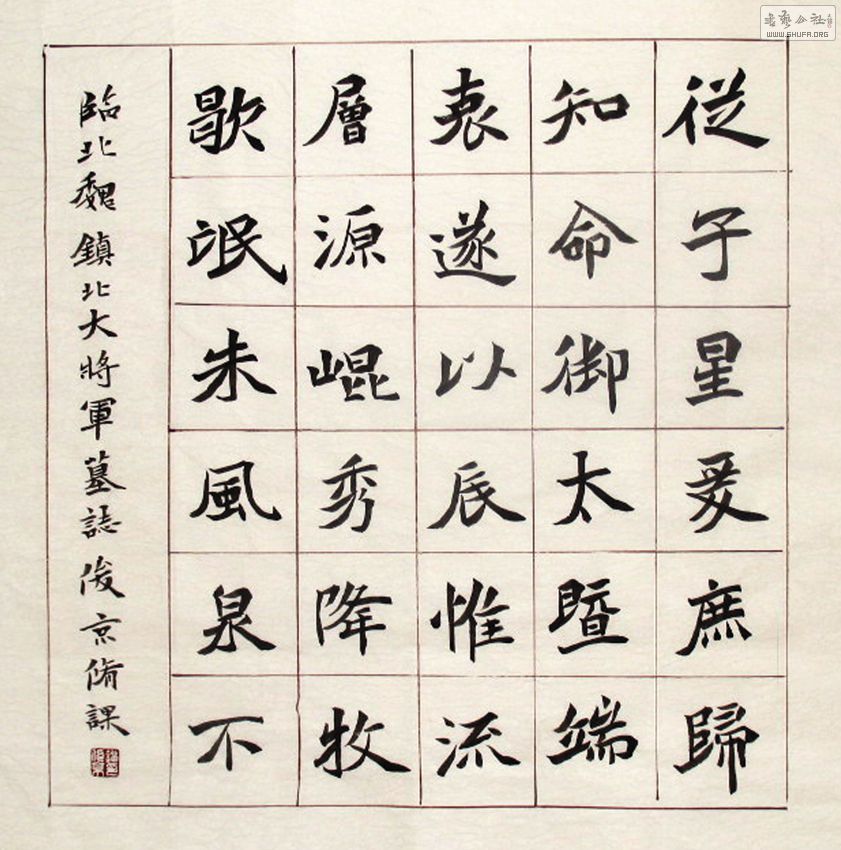 從子星爰庶歸
知命御太暨端
衷遂以辰惟流
層源崐秀降牧
歇氓朱風泉不
臨北魏鎮北大將軍墓誌俊京脩課
书艺公社
WWW.SHUFA.ORG